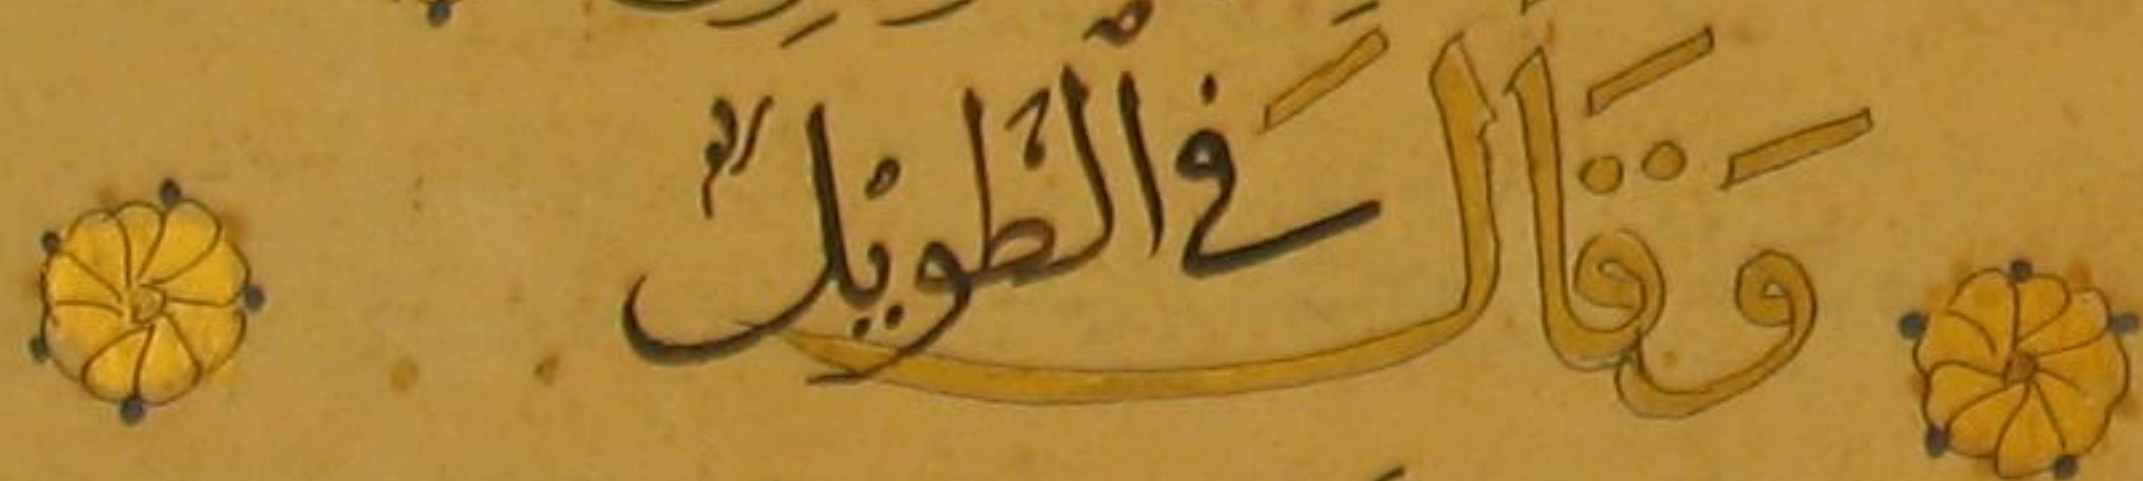 وَقَالَ في الْطَويْلِ